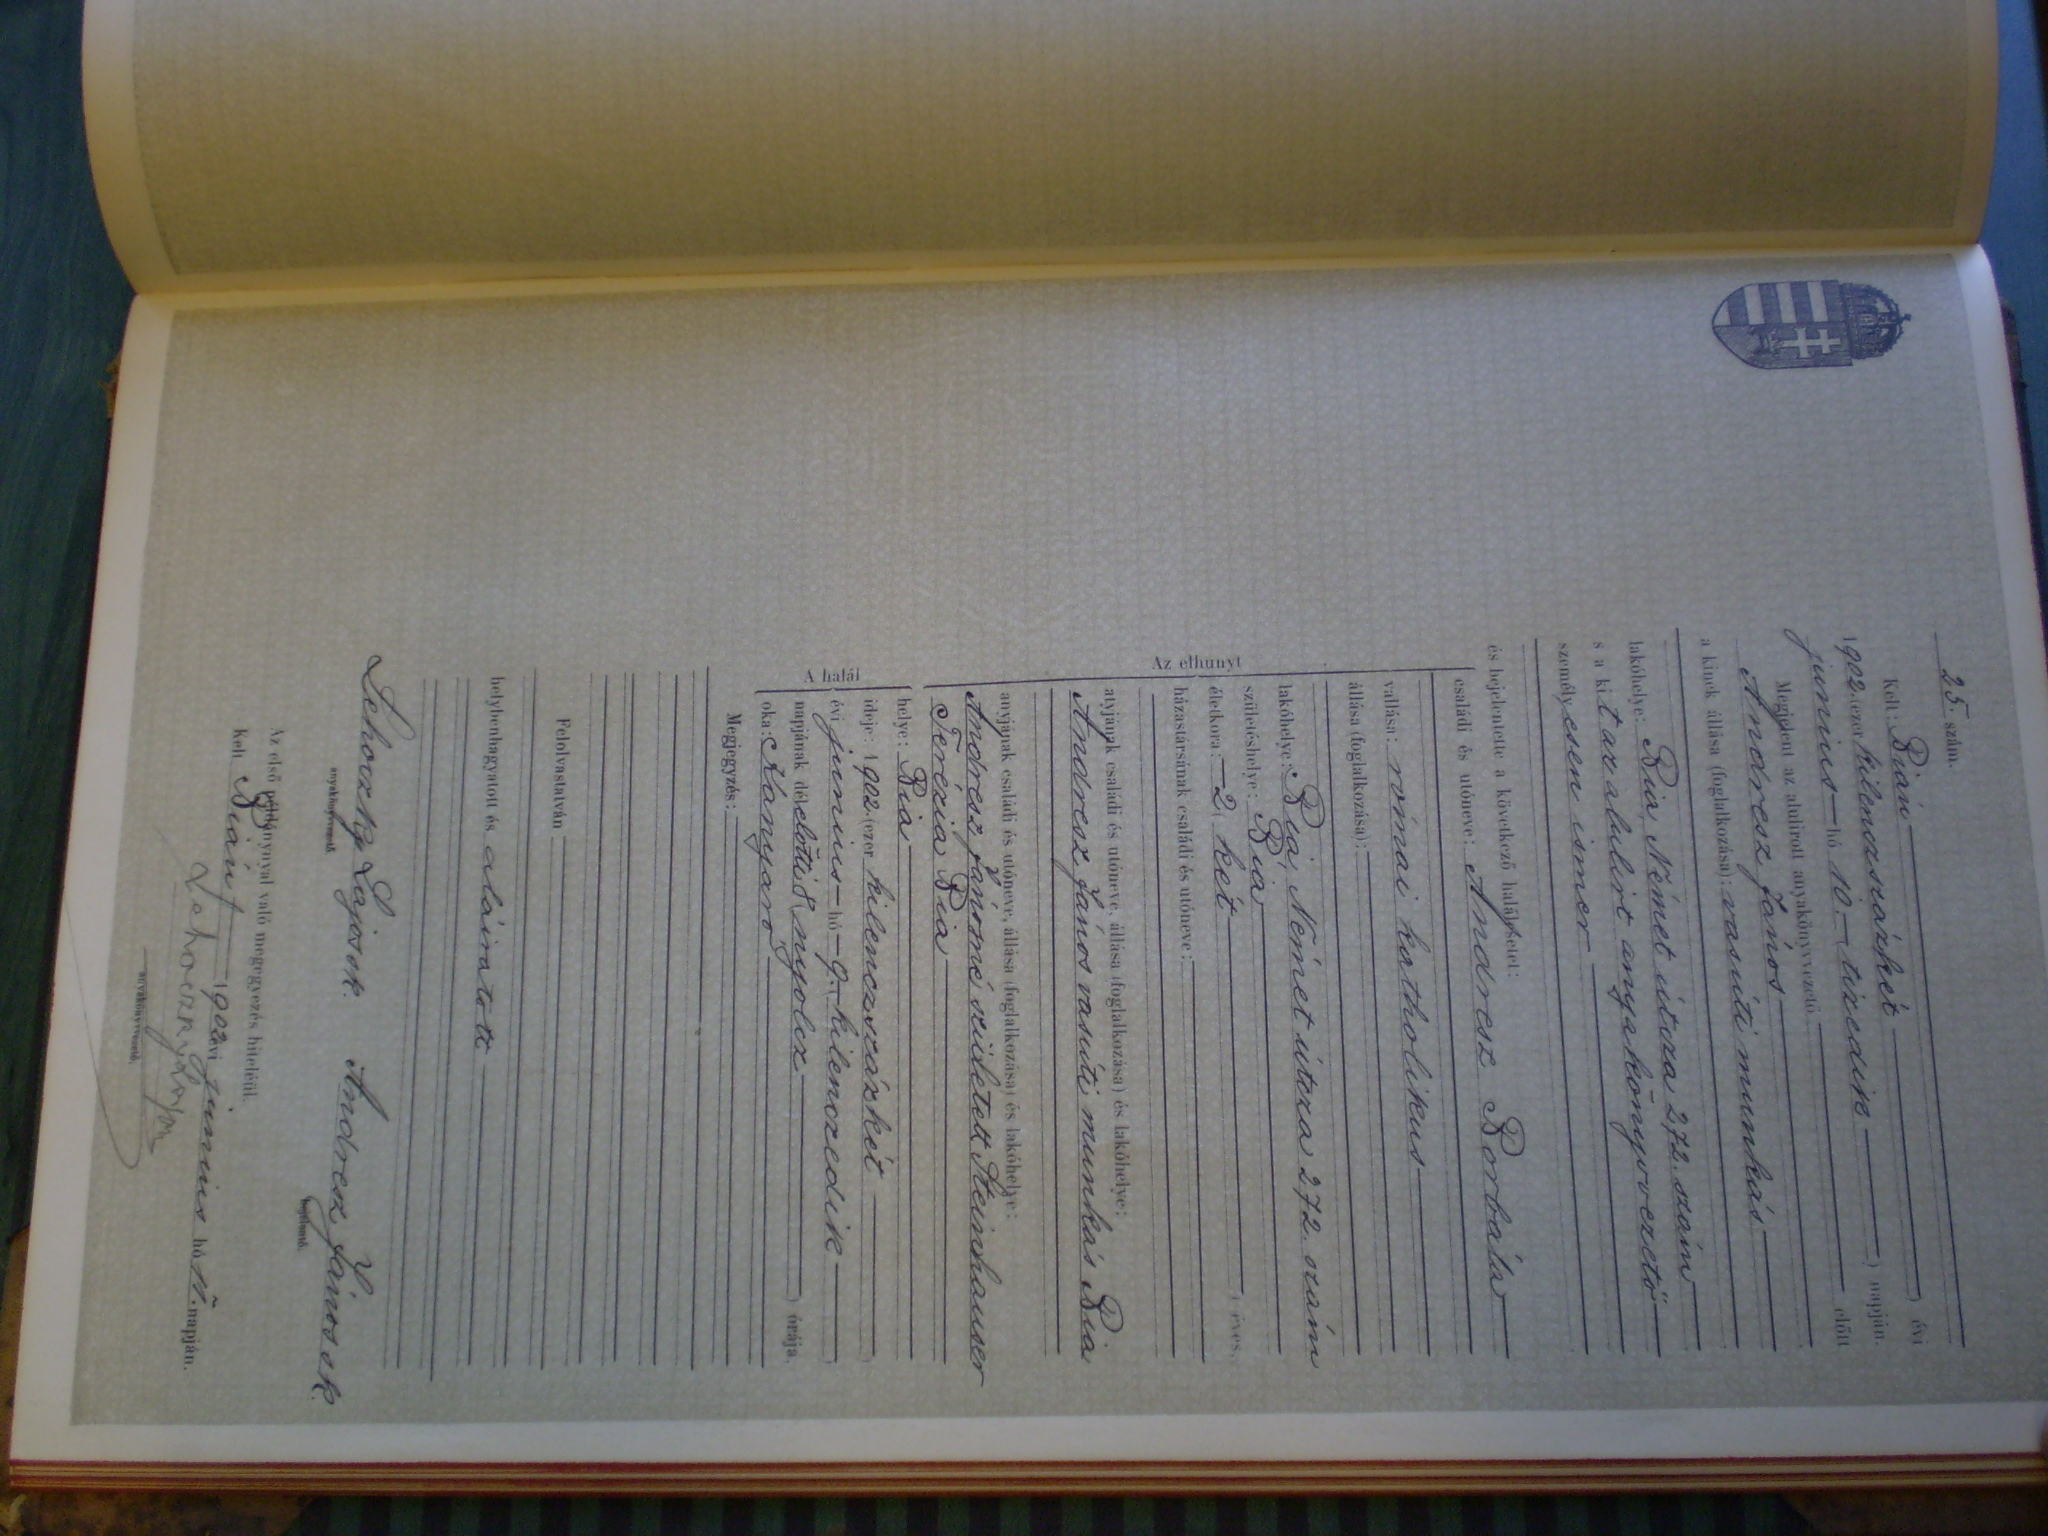 25. szám.
Kelt: Bián évi
1902. (ezer kilenczszázkét) napján.
junius hó 10 tizedik
Megjelent az alulirott anyakönyvvezető előtt
Andresz János
a kinek állása (foglalkozása): vasúti munkás
lakóhelye: Bia, Német útcza 272. szám
s a kit az alulirt anyakönyvvezető
személyesen ismer
és bejelentette a következő halálesetet:
Az elhunyt
családi és utóneve: Andresz Borbála
vallása: római katholikus
állása (foglalkozása):
lakóhelye: Bia, Német útcza 272. szám
születéshelye: Bia
életkora: 2 (két) éves,
házastársának családi és utóneve:
atyjának családi és utóneve, állása (foglalkozása) és lakóhelye:
Andresz János vasúti munkás Bia
anyjának családi és utóneve, állása (foglalkozása) és lakóhelye:
Andresz Jánosné született Steinhauser
Terézia Bia
A halál
helye: Bia
ideje: 1902 (ezer kilenczszázkét)
évi junius hó 9. (kilenczedik)
napjának délelőtti 8 (nyolcz) órája,
oka: Kanyaró
Megjegyzés:
Felolvastatván
helybenhagyatott és aláiratott
Lehoczky Lajos sk. Andresz János sk.
anyakönyvvezető. bejelentő.
Az első példánynyal való megegyezés hiteléül.
Kelt Bián, 1902 évi junius hó 11. napján.
Lehoczky Lajos
anyakönyvvezető.